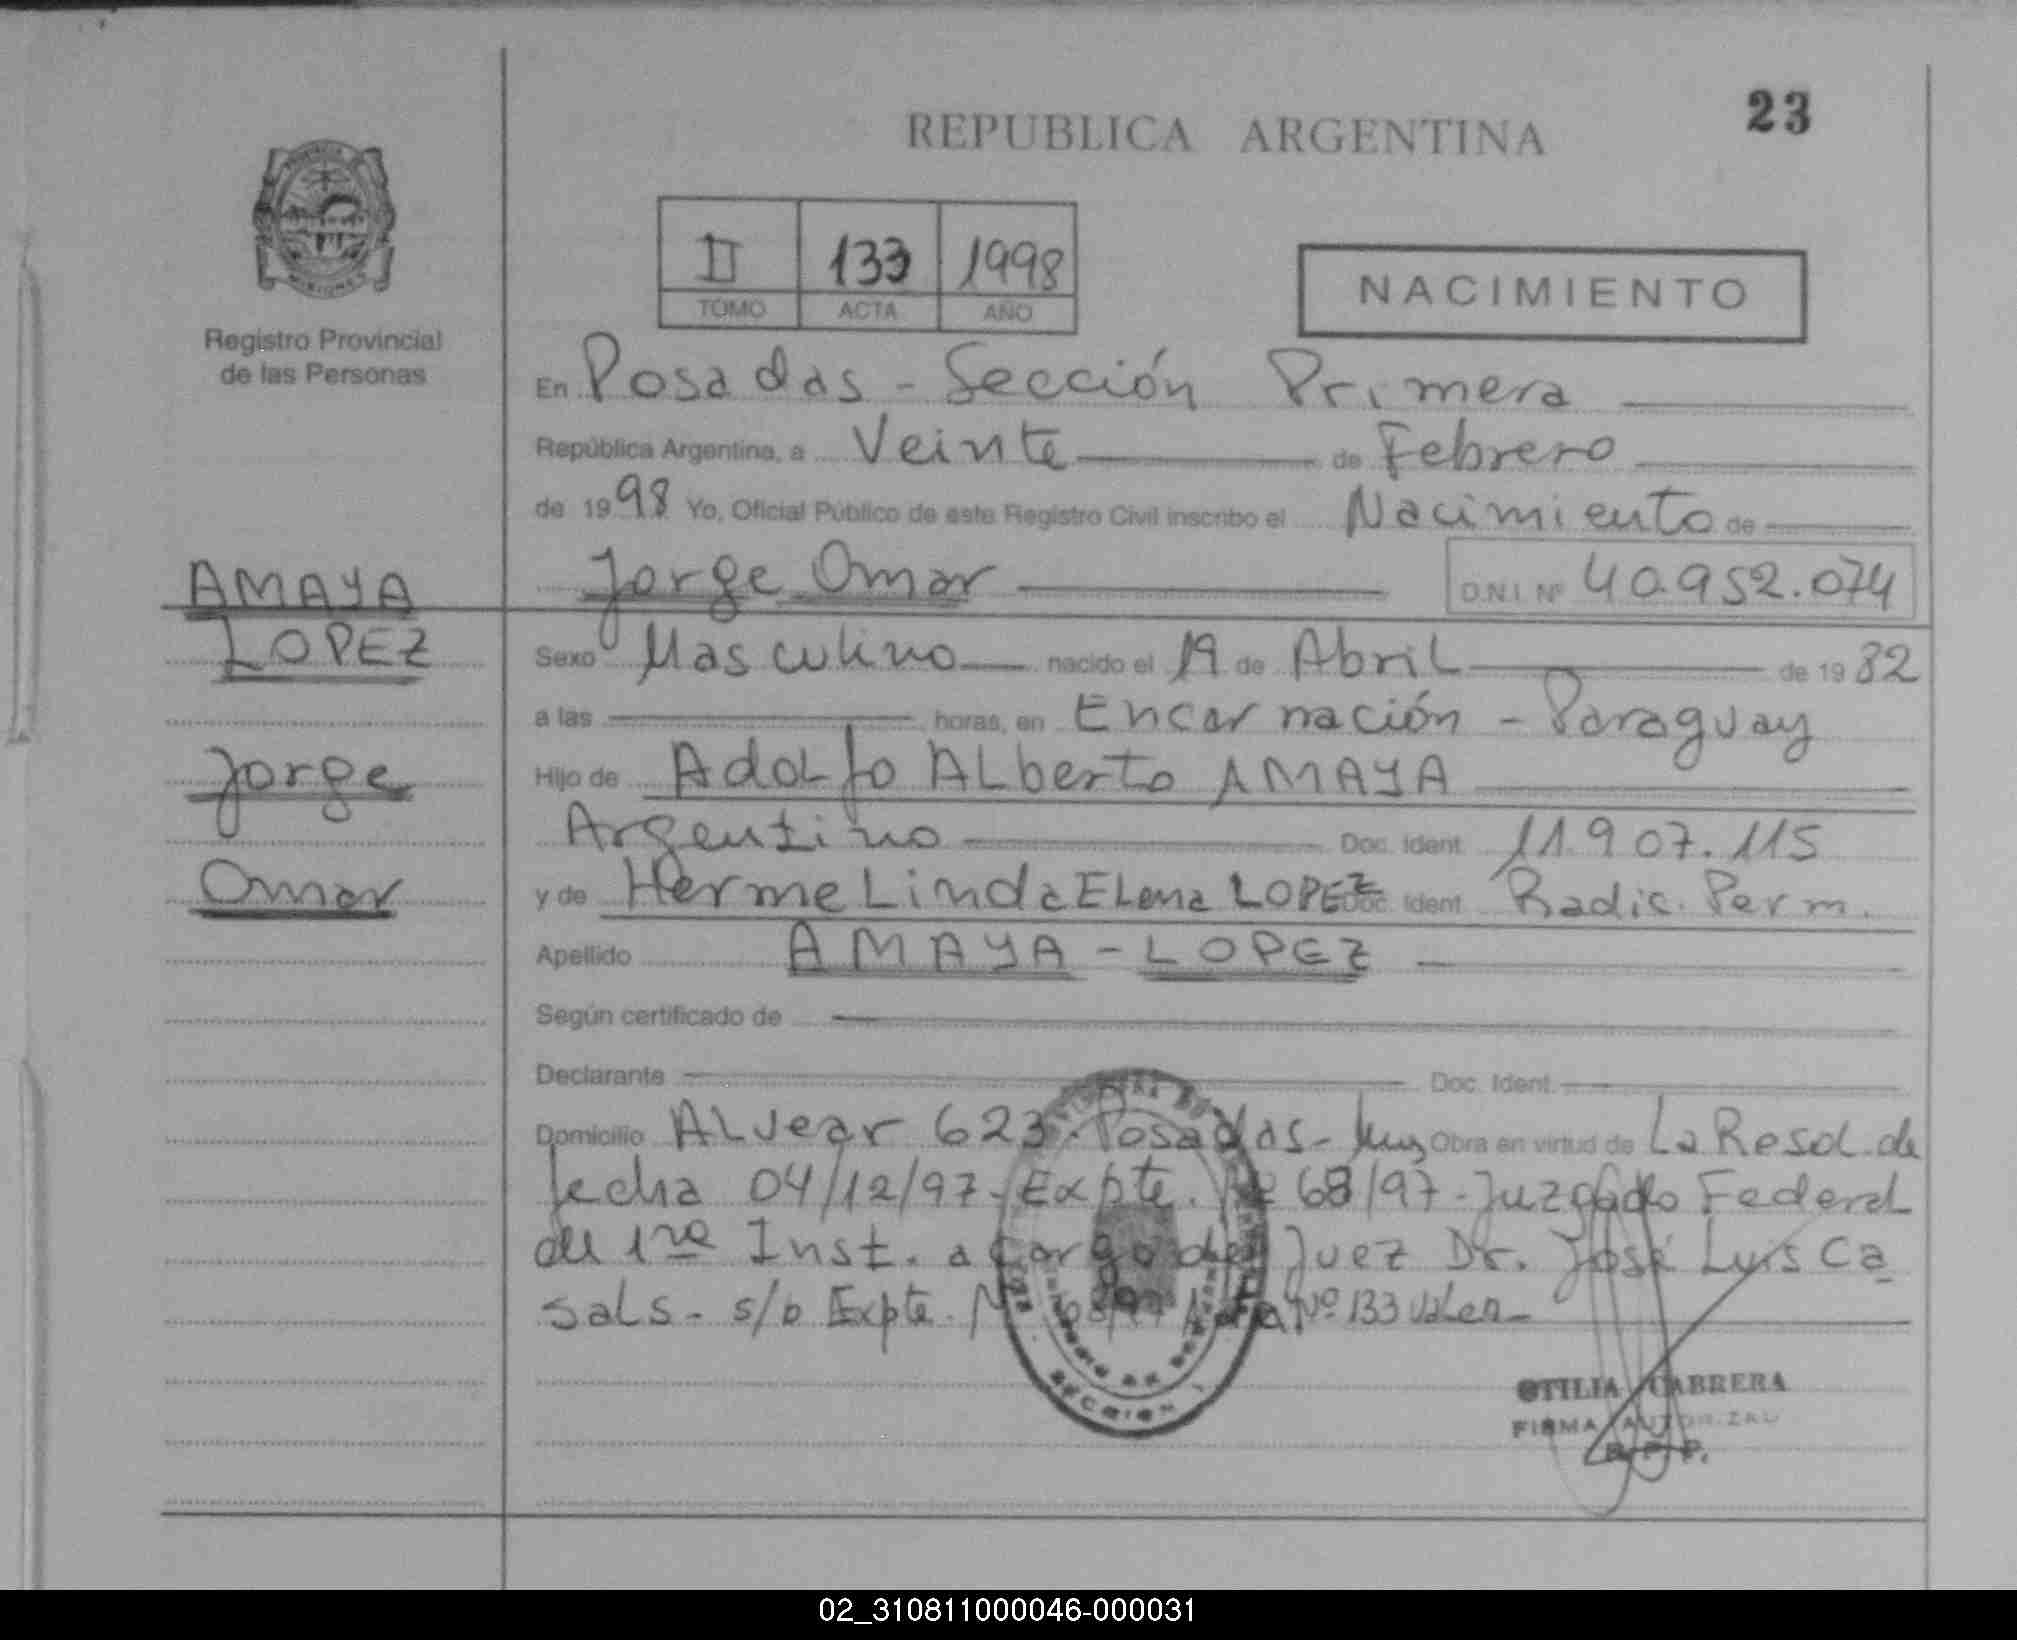 23
REPUBLICA ARGENTINA
II 133 1998
TOMO ACTA AÑO
NACIMIENTO
Registro Provincial
de las Personas
En Posadas - Sección Primera
República Argentina, a Veinte de Febrero
de 1998 Yo, Oficial Público de este Registro Civil inscribo el Nacimiento de
Jorge Omar D.N.I. Nº 40.952.074
AMAYA
LOPEZ
Jorge
Omar
Sexo Masculino nacido el 19 de Abril de 1982
a las horas, en Encarnación - Paraguay
Hijo de Adolfo Alberto AMAYA
Argentino Doc. Ident. 11.907.115
y de Hermelinda Elena LOPEZ Doc. Ident. Radic. Perm.
Apellido AMAYA - LOPEZ
Según certificado de
Declarante Doc. Ident.
Domicilio Alvear 623. Posadas - Obra en virtud de La Resol. de
fecha 04/12/97 - Expte. Nº 68/97 - Juzgado Federal
de 1ra Inst. a cargo del Juez Dr. José Luis Ca
sals - s/b Expte. Nº 68/97 Acta Nº 133 Valen -
SECCION
OTILIA CABRERA
FIRMA AUTORIZAD
R. P. P.
02_310811000046-000031